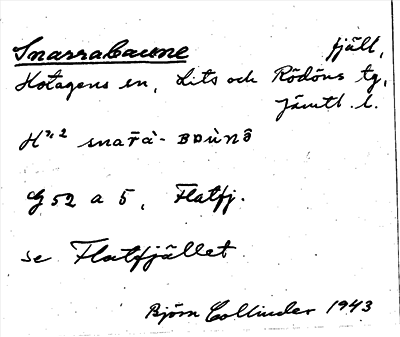 Snarrabaune fjäll,
Hotagens sn, Lits och Rödöns tg,
Jämtl. l.
H 72 snar̄à- ʙᴅùnə̂
G 52 a 5, Flatfj.
se Flatfjället
Björn Collinder 1943